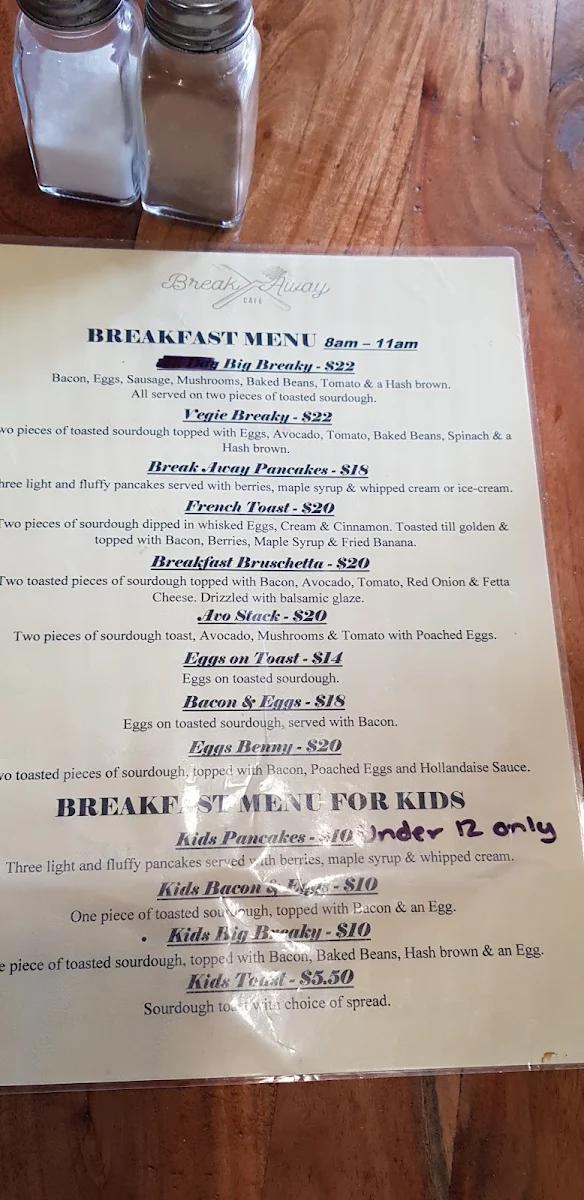 Break Away
CAFE
BREAKFAST MENU 8am – 11am
Day Big Breaky - $22
Bacon, Eggs, Sausage, Mushrooms, Baked Beans, Tomato & a Hash brown.
All served on two pieces of toasted sourdough.
Vegie Breaky - $22
wo pieces of toasted sourdough topped with Eggs, Avocado, Tomato, Baked Beans, Spinach & a
Hash brown.
Break Away Pancakes - $18
hree light and fluffy pancakes served with berries, maple syrup & whipped cream or ice-cream.
French Toast - $20
Two pieces of sourdough dipped in whisked Eggs, Cream & Cinnamon. Toasted till golden &
topped with Bacon, Berries, Maple Syrup & Fried Banana.
Breakfast Bruschetta - $20
Two toasted pieces of sourdough topped with Bacon, Avocado, Tomato, Red Onion & Fetta
Cheese. Drizzled with balsamic glaze.
Avo Stack - $20
Two pieces of sourdough toast, Avocado, Mushrooms & Tomato with Poached Eggs.
Eggs on Toast - $14
Eggs on toasted sourdough.
Bacon & Eggs - $18
Eggs on toasted sourdough, served with Bacon.
Eggs Benny - $20
wo toasted pieces of sourdough, topped with Bacon, Poached Eggs and Hollandaise Sauce.
BREAKFAST MENU FOR KIDS
Kids Pancakes - $10 Under 12 only
Three light and fluffy pancakes served with berries, maple syrup & whipped cream.
Kids Bacon & Eggs - $10
One piece of toasted sourdough, topped with Bacon & an Egg.
• Kids Big Breaky - $10
e piece of toasted sourdough, topped with Bacon, Baked Beans, Hash brown & an Egg.
Kids Toast - $5.50
Sourdough toast with choice of spread.